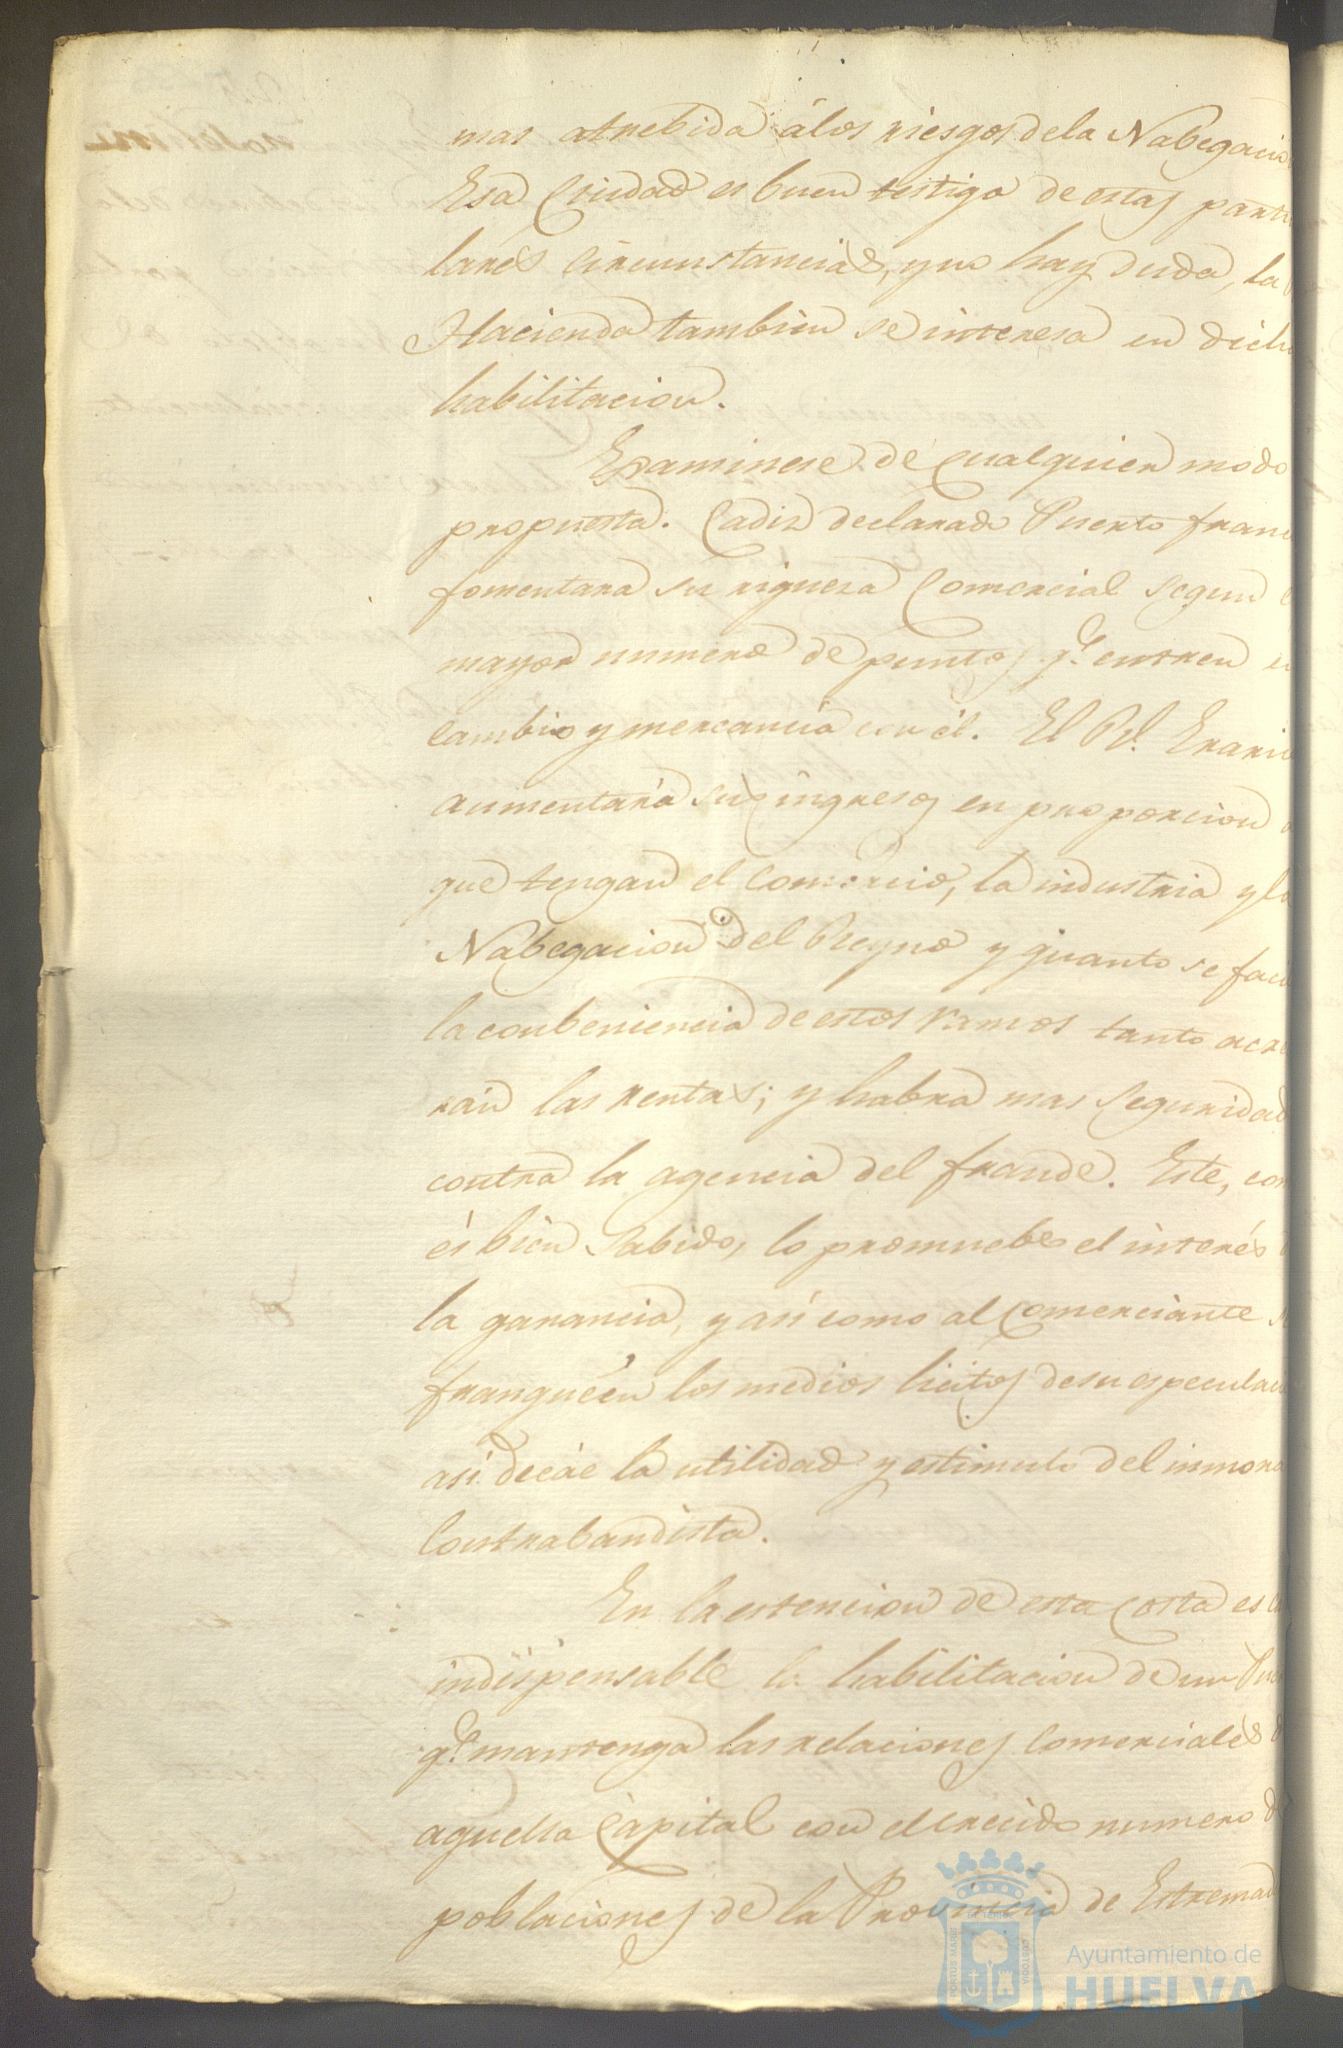 mas atrebida á los riesgos de la Nabegacio
Esa Ciudad es buen testigo de estas parti
lares circunstancias, y no hay duda, la
Hacienda tambien se interesa en dich
habilitacion.
Examinese de cualquier modo
propuesta. Cadiz declarado Puerto fran
fomentara su riqueza Comercial segun
mayor numero de puntos q.e entren
cambio y mercancia con él. El Rl. Erari
aumentará sus ingresos en proporcion
que tengan el comercio, la industria y la
Nabegacion del Reyno y quanto se faci
la conbeniencia de estos ramos tanto acre
rán las rentas; y habra mas seguridad
contra la agencia del fraude. Este, com
és bien sabido, lo promuebe el interés
la ganancia, y asi como al Comerciante
franqueen los medios licitos de su especulac
asi decáe la utilidad y estimulo del inmora
Contrabandista.
En la estencion de esta Costa es
indispensable la habilitacion de un Pue
q.e mantenga las relaciones Comerciales
aquella Capital con el crecido numero d
poblaciones de la Provincia de Estremad
PORTUS MARIS
ET TERRE
CUSTODIA
Ayuntamiento de
HUELVA